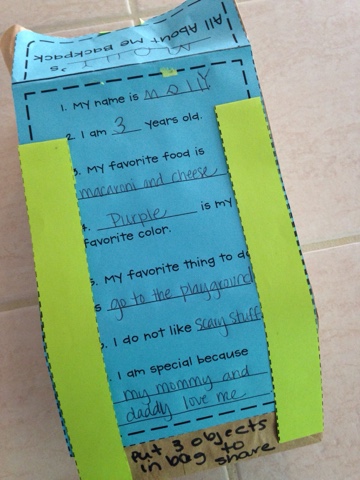 's
All About Me Backpack
1. My name is MOllY
2. I am 3 years old.
3. My favorite food is
macaroni and cheese
Purple is my
favorite color.
5. My favorite thing to do
is go to the playground
I do not like scary stuff
I am special because
my mommy and
daddy love me
Put 3 objects
in bag to
share